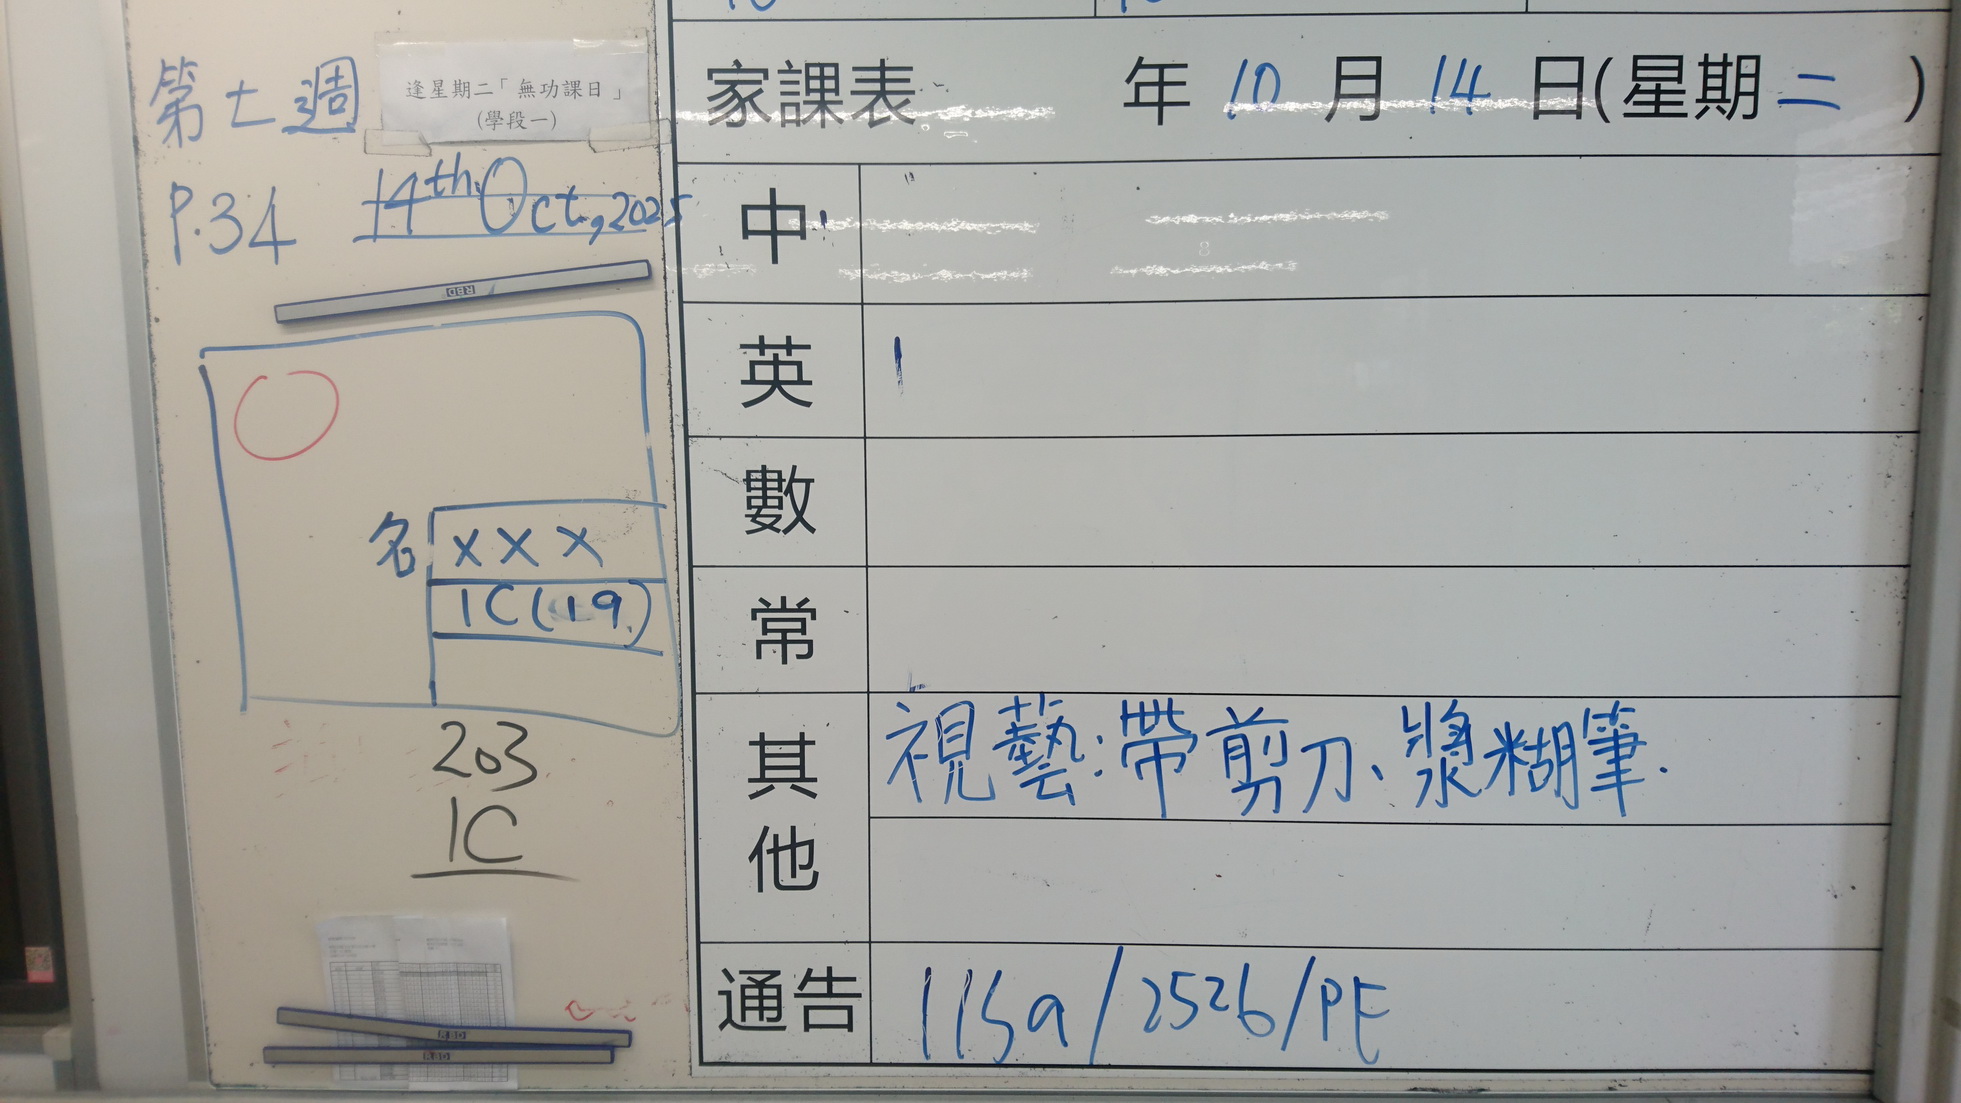 第七週
逢星期二「無功課日」
(學段一)
P.34 14th Oct, 2025
RBD
名 X X X
1C(19)
203
1C
RBD
RBD
家課表 年 10 月 14 日(星期二)
中
英
數
常
其他 視藝:帶剪刀、漿糊筆.
通告 115a/2526/PE